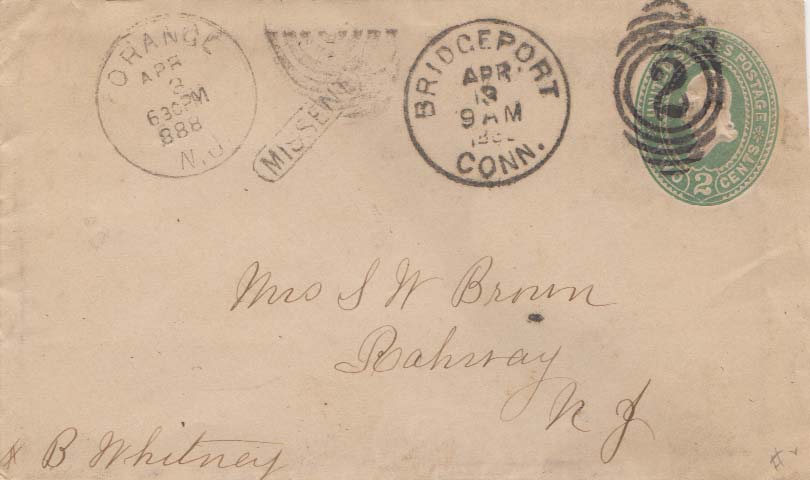 ORANGE
APR
3
630PM
888
N.J
MISSENT
BRIDGEPORT
APR
13
9 AM
CONN.
2
POSTAGE
2 CENTS
Mrs S W Brown
Rahway
N J
B Whitney